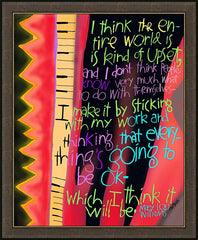 I think the en-
tire world is
is kind of upset,
and I don't think people
know very much what
to do with themselves-
I make it by sticking
with my work and
thinking that every
thing's going to
be OK-
which I think it
will be.